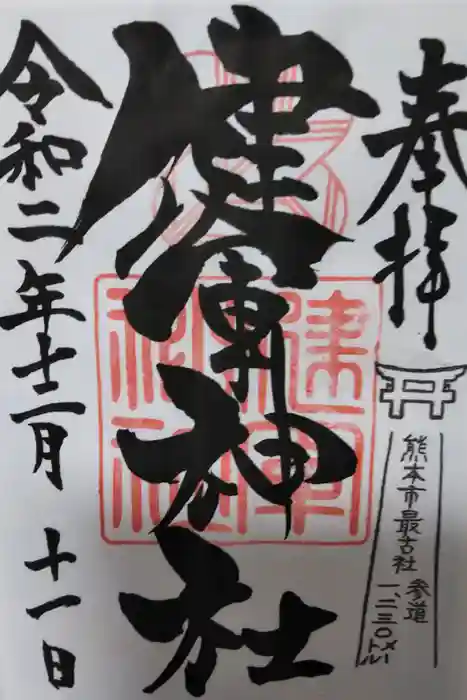 奉拝
熊本市最古社
参道
一、二三〇メートル
健軍神社
健軍
神社
令和二年十二月 十一日